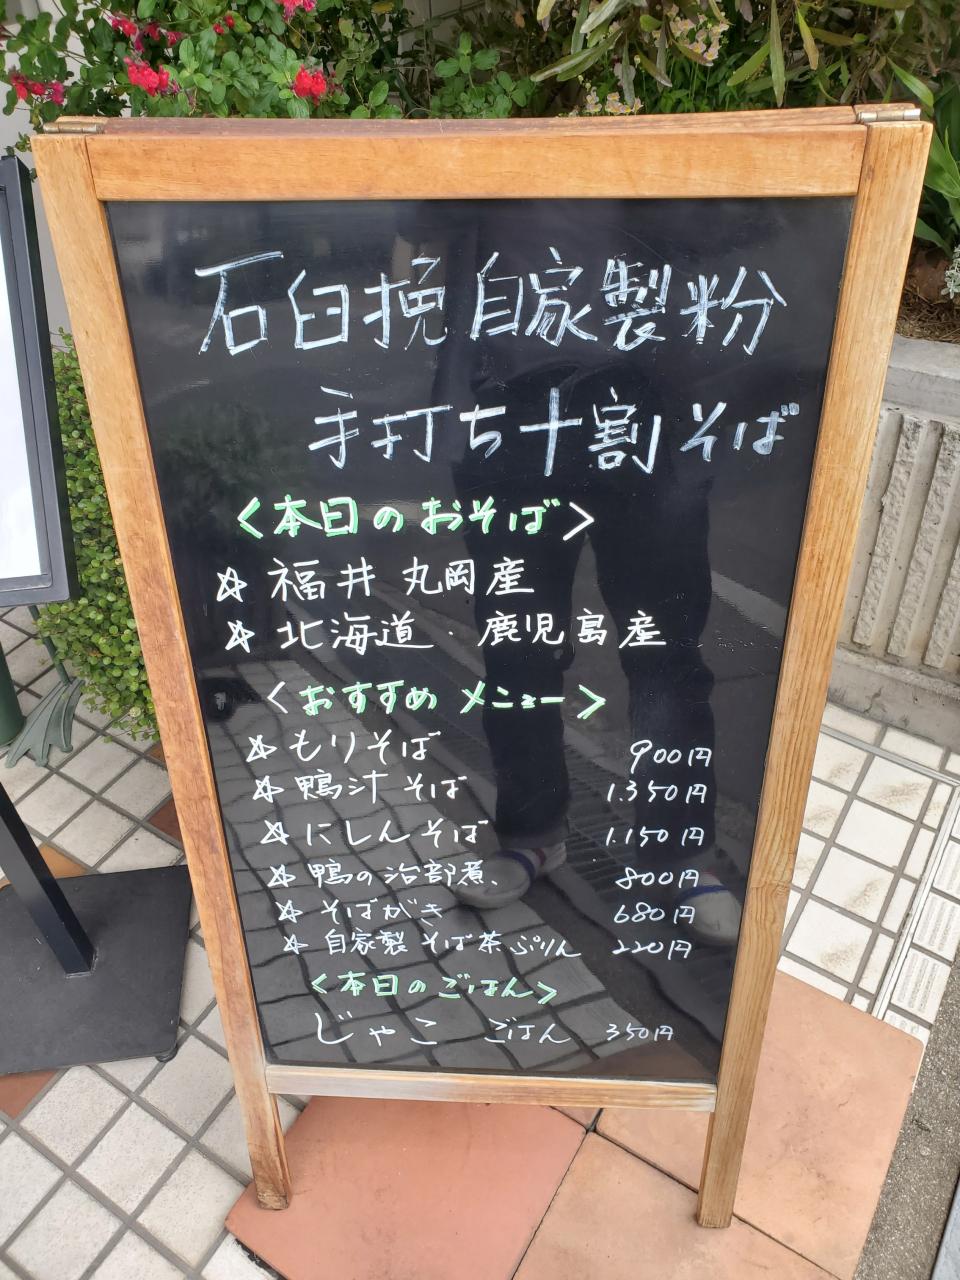 石臼挽自家製粉
手打ち十割そば
<本日のおそば>
☆ 福井 丸岡産
☆ 北海道・鹿児島産
<おすすめ メニュー>
☆ もりそば 900円
☆ 鴨汁そば 1.350円
☆ にしんそば 1.150円
☆ 鴨の治部煮、 800円
☆ そばがき 680円
☆ 自家製 そば茶ぷりん 220円
<本日のごはん>
じゃこ ごはん 350円